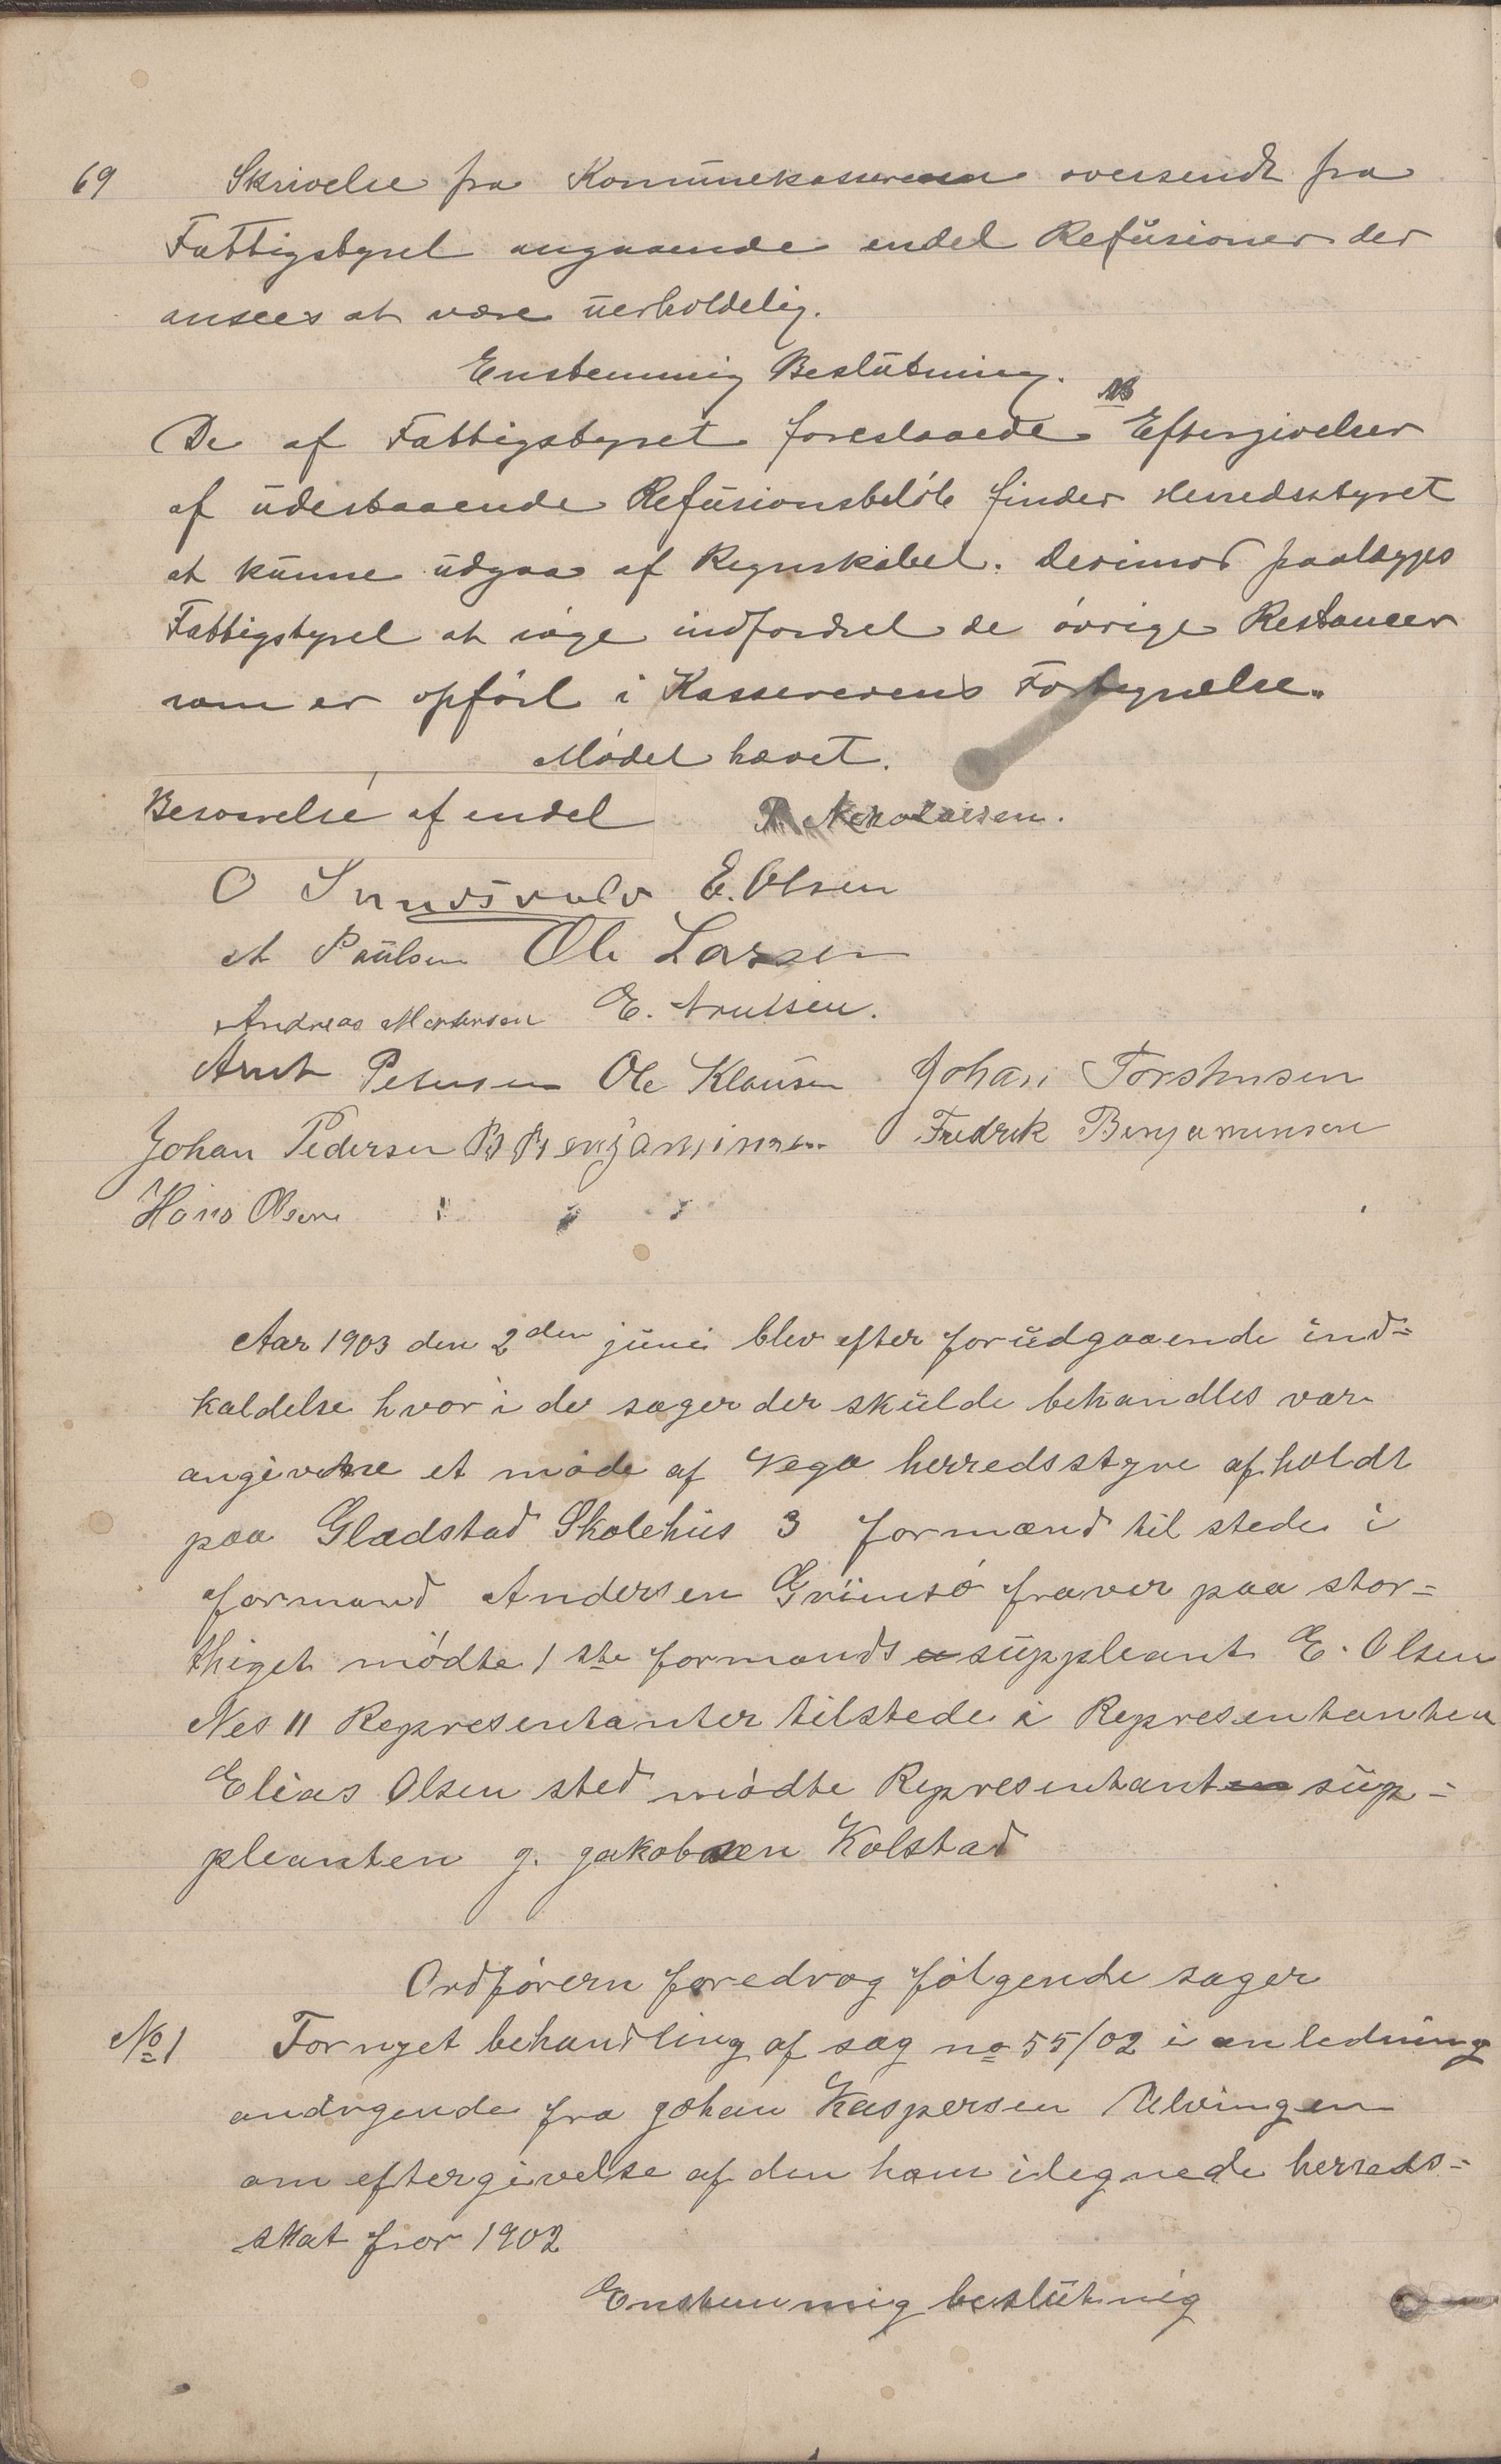 69 Skrivelse fra Kommunekassereren oversendt fra
Fattigstyret angaaende endel Refusioner der
ansees at være uerholdelig.
Enstemmig Beslutning.
De af Fattigstyret foreslaaede Eftergivelser
af udestaaende Refusionsbeløb finder Herredsstyret
at kunne udgaa af Regnskabet. Derimod paalægges
Fattigstyret at søge indfordret de øvrige Restancer
som er opført i Kassererens Fortegnelse.
Mødet hævet.
Besvarelse af endel P. Nekolaisen.
O Sundsvold E. Olsen
A Paulsen Ole Larsen
Andreas Mortensen E. Knutsen.
Arnt Petersen Ole Klausen Johan Torstensen
Johan Pedersen B Benjaminsen Fredrik Benjaminsen
Hans Olsen " " "
Aar 1903 den 2den juni blev efter forudgaaende ind=
kaldelse hvor i de sager der skulde behandles var
angivne et møde af Vega herredsstyre afholdt
paa Gladstad Skolehus 3 formænd til stede i
formand Andersen Grimsø fravær paa stor=
thiget mødte 1ste formands suppleant E. Olsen
Nes 11 Representanter tilstede i Representanten
Elias Olsen sted mødte Representant sup=
pleanten J. Jakobsen Kolstad
Ordføreren foredrog følgende sager
No 1 Fornyet behandling af sag no 55/02 i anledning
andrgende fra Johan Kaspersen Ulvingen
om eftergivelse af den ham ilegnede herreds=
skat for 1902
Enstemmig beslutnig